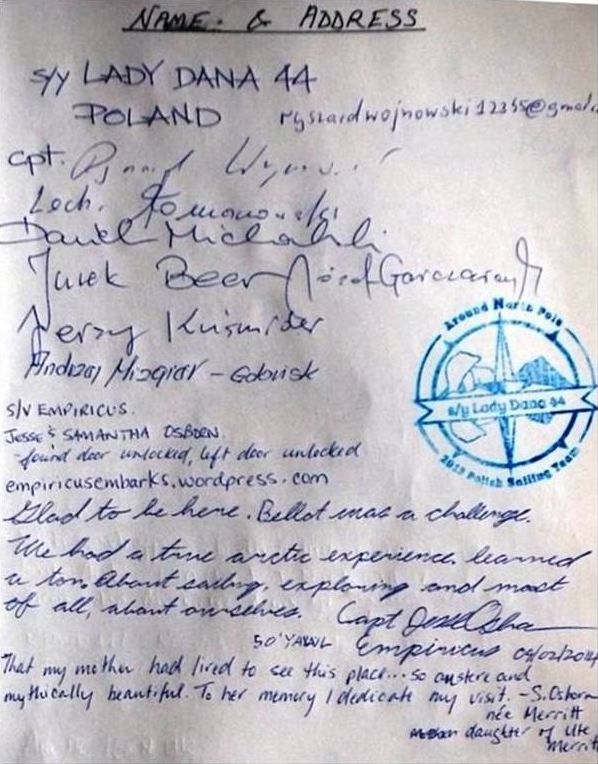 NAME & ADDRESS
S/Y LADY DANA 44
POLAND ryszardwojnowski12345@gmai
cpt.
Lech.
Daniel Michalski
Jurek Beer
Jerzy Kuśmider
Andrzej Mizgiar - Gdańsk
Around North Pole
s/y Lady Dana 44
2013 Polish Sailing Team
S/V EMPIRICUS.
JESSE & SAMANTHA OSBORN.
-found door unlocked, left door unlocked
empiricusembarks.wordpress.com
Glad to be here. Bellot was a challenge.
We had a true arctic experience, learned
a ton. About sailing, exploring and most
of all, about ourselves. Capt Jesse Osborn
50' YAWL Empiricus 09/02/2014
That my mother had lived to see this place... so austere and
mythically beautiful. To her memory I dedicate my visit. -S. Osborn
née Merritt
daughter of Ute
Merritt